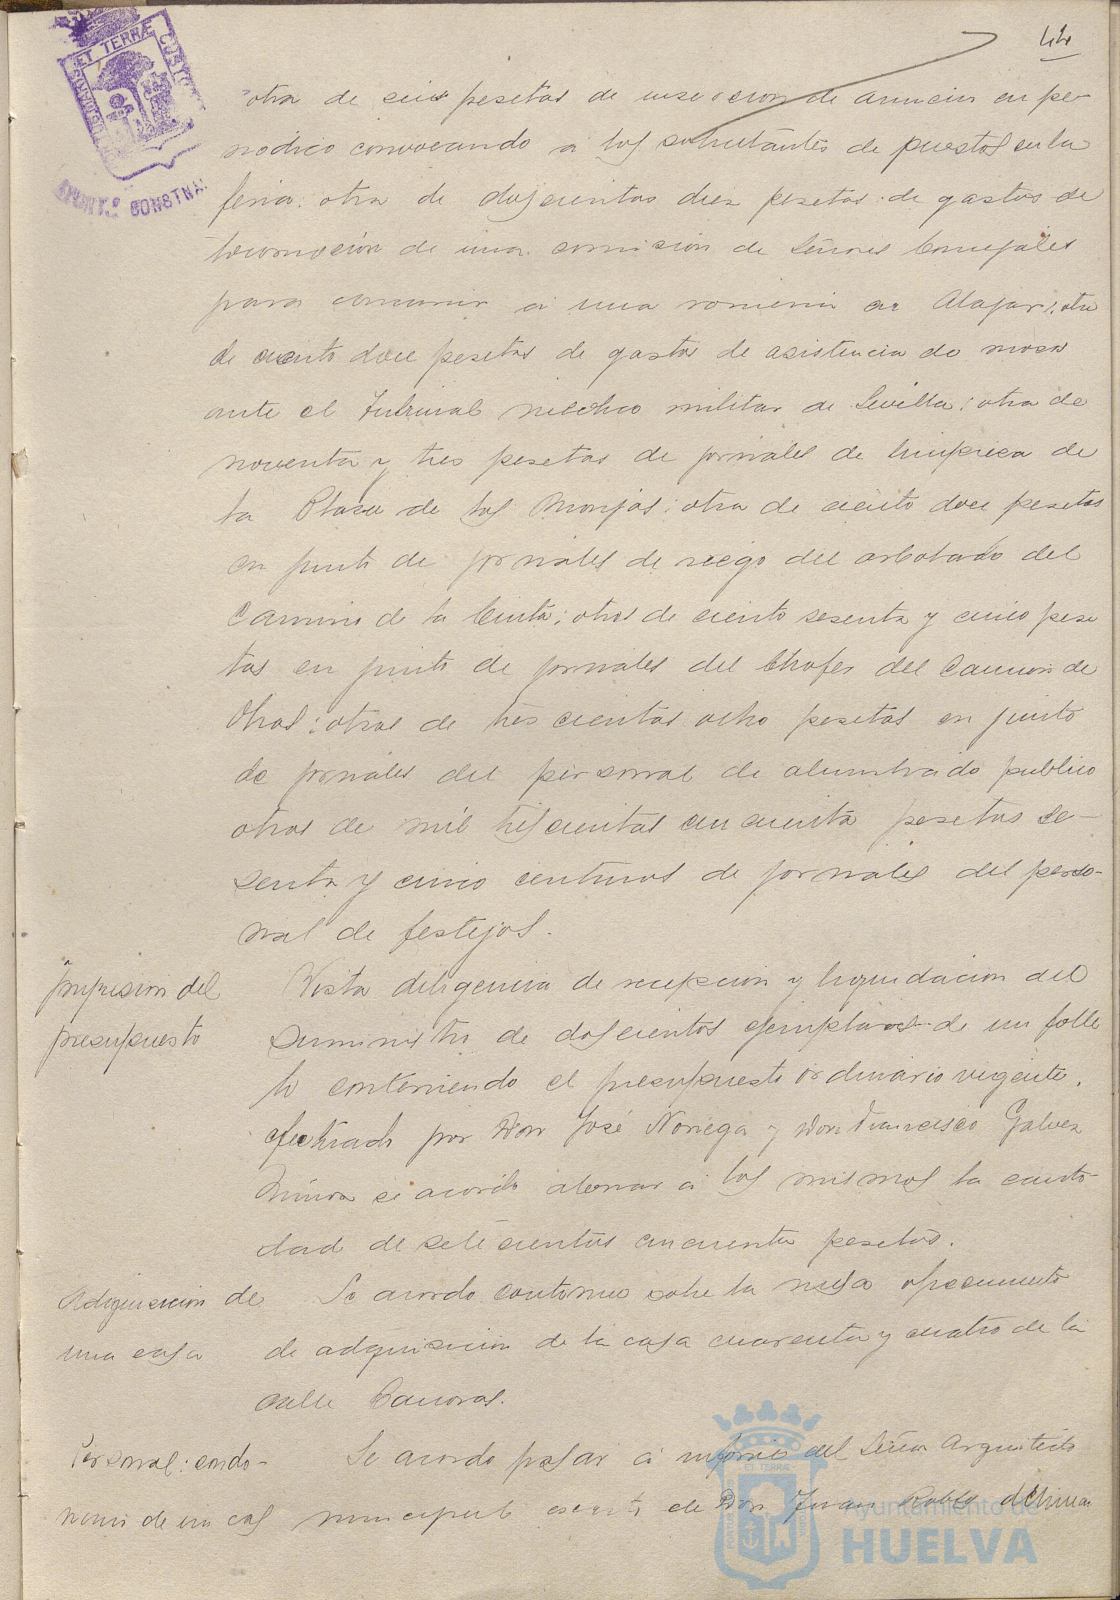 44
otra de seis pesetas de insercion de anuncio en pe-
riodico convocando a los solicitantes de puestos en la
feria: otra de doscientas diez pesetas de gastos de
locomoción de una comision de Señores Concejales
para concurrir a una romeria en Alajar: otra
de ciento doce pesetas de gastos de asistencia de mozos
ante el Tribunal medico militar de Sevilla: otra de
noventa y tres pesetas de jornales de limpieza de
la Plaza de las Monjas: otra de ciento doce pesetas
en junto de jornales de riego del arbolado del
Camino de la Cinta; otras de ciento sesenta y cinco pese
tas en junto de jornales del Chofer del Camion de
Obras: otras de trescientas ocho pesetas en junto
de jornales del personal de alumbrado publico
otras de mil trescientas cincuenta pesetas se-
senta y cinco centimos de jornales del perso-
nal de festejos.
Impresion del
presupuesto
Vista diligencia de recepcion y liquidacion del
suministro de doscientos ejemplares de un folle
to conteniendo el presupuesto ordinario vigente,
efectuado por Don José Noriega y Don Francisco Galvez
se acordo abonar a los mismos la canti
dad de setecientas cincuenta pesetas.
Adquisicion de
una casa
Se acordo continue sobre la mesa ofrecimiento
de adquisicion de la casa cuarenta y cuatro de la
calle Canovas.
Personal: condo-
nomio de un cas
Se acordo pasar a informe del Señor Arquitecto
municipal escrito de Don Juan Robles delinean
ET TERRÆ
AYUNT.º CONSTNAL
Ayuntamiento de
HUELVA